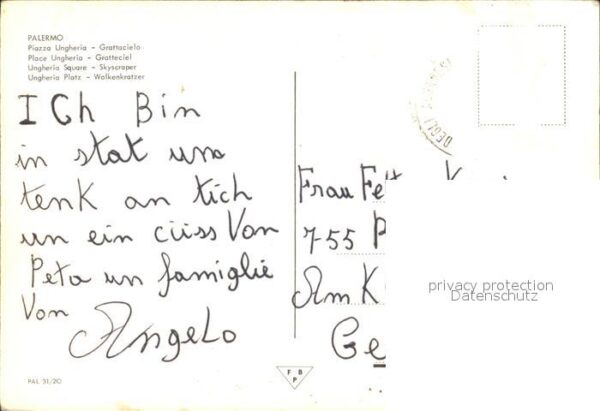 PALERMO
Piazza Ungheria - Grattacielo
Place Ungheria - Gratteciel
Ungheria Square - Skyscraper
Ungheria Platz - Wolkenkratzer
ICh Bin
in stat une
tenk an tich
un ein cüss Von
Peta un famiglie
Von
Angelo
DEGLI
Frau
7-55
Am K
privacy protection
Datenschutz
F B P
PAL 31/20